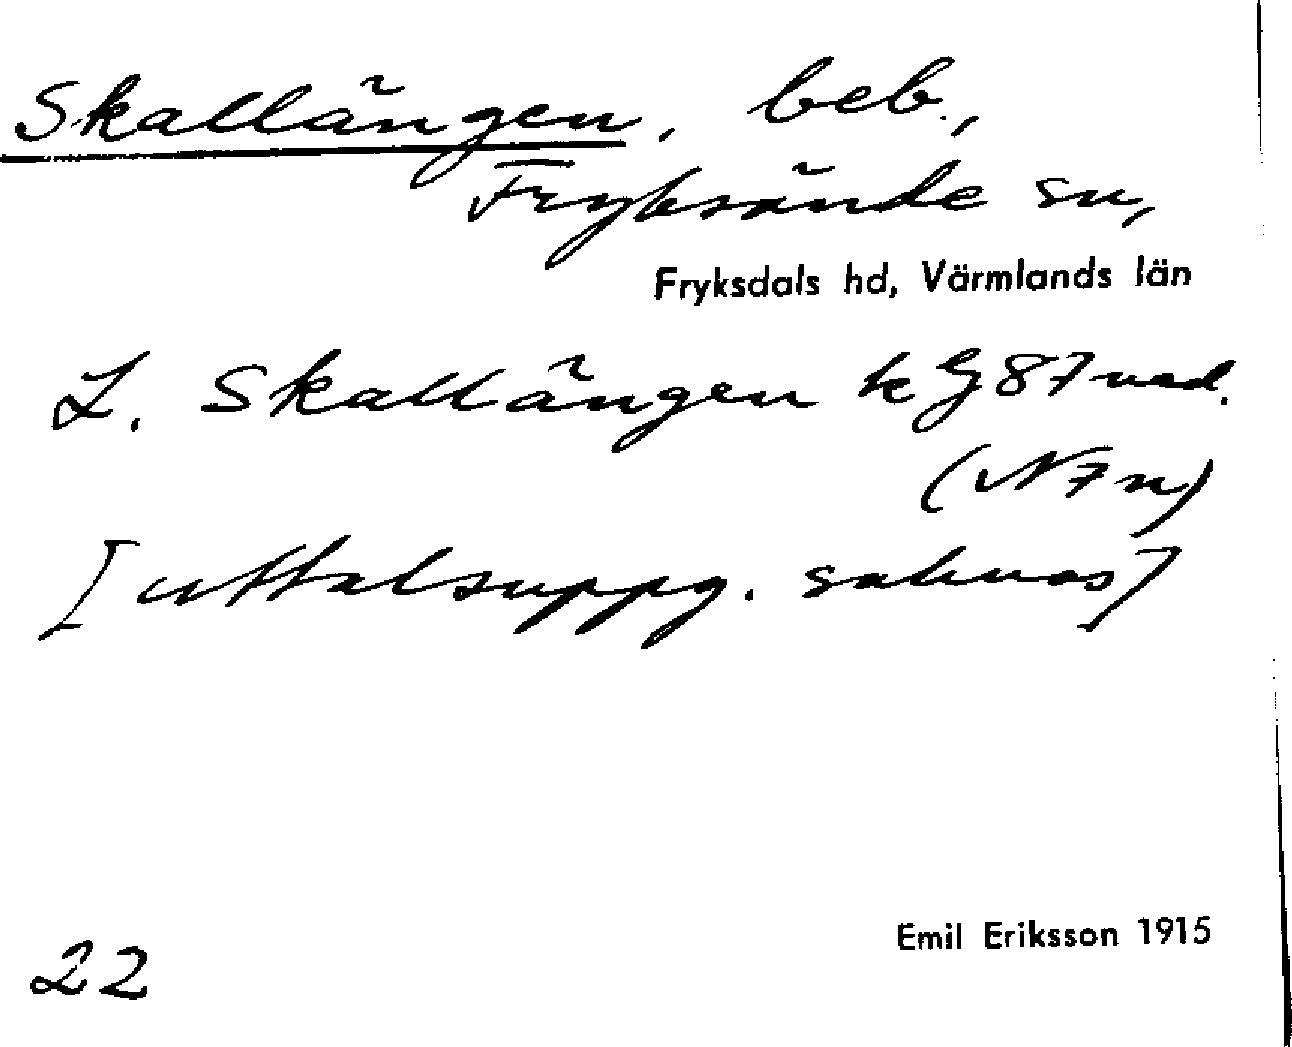 Skallängen, beb.,
Fryksände sn,
Fryksdals hd, Värmlands län
L. Skallängen k G 87 ned.
(N 7 n)
[uttalsuppg. saknas]
Emil Eriksson 1915
22